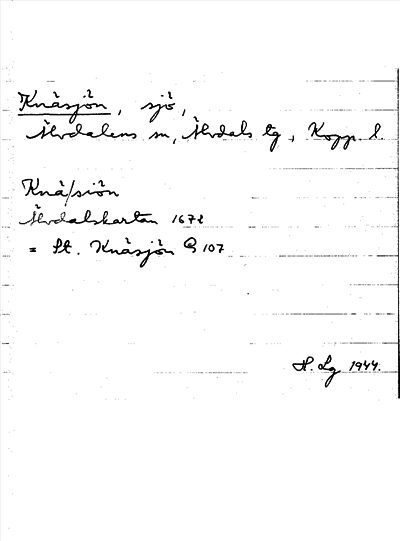 Knäsjön, sjö,
Älvdalens sn, Älvdals tg, Kopp. l.
Knä/siön
Älvdalskartan 1672
= St. Knäsjön G 107
H. Lg 1944.